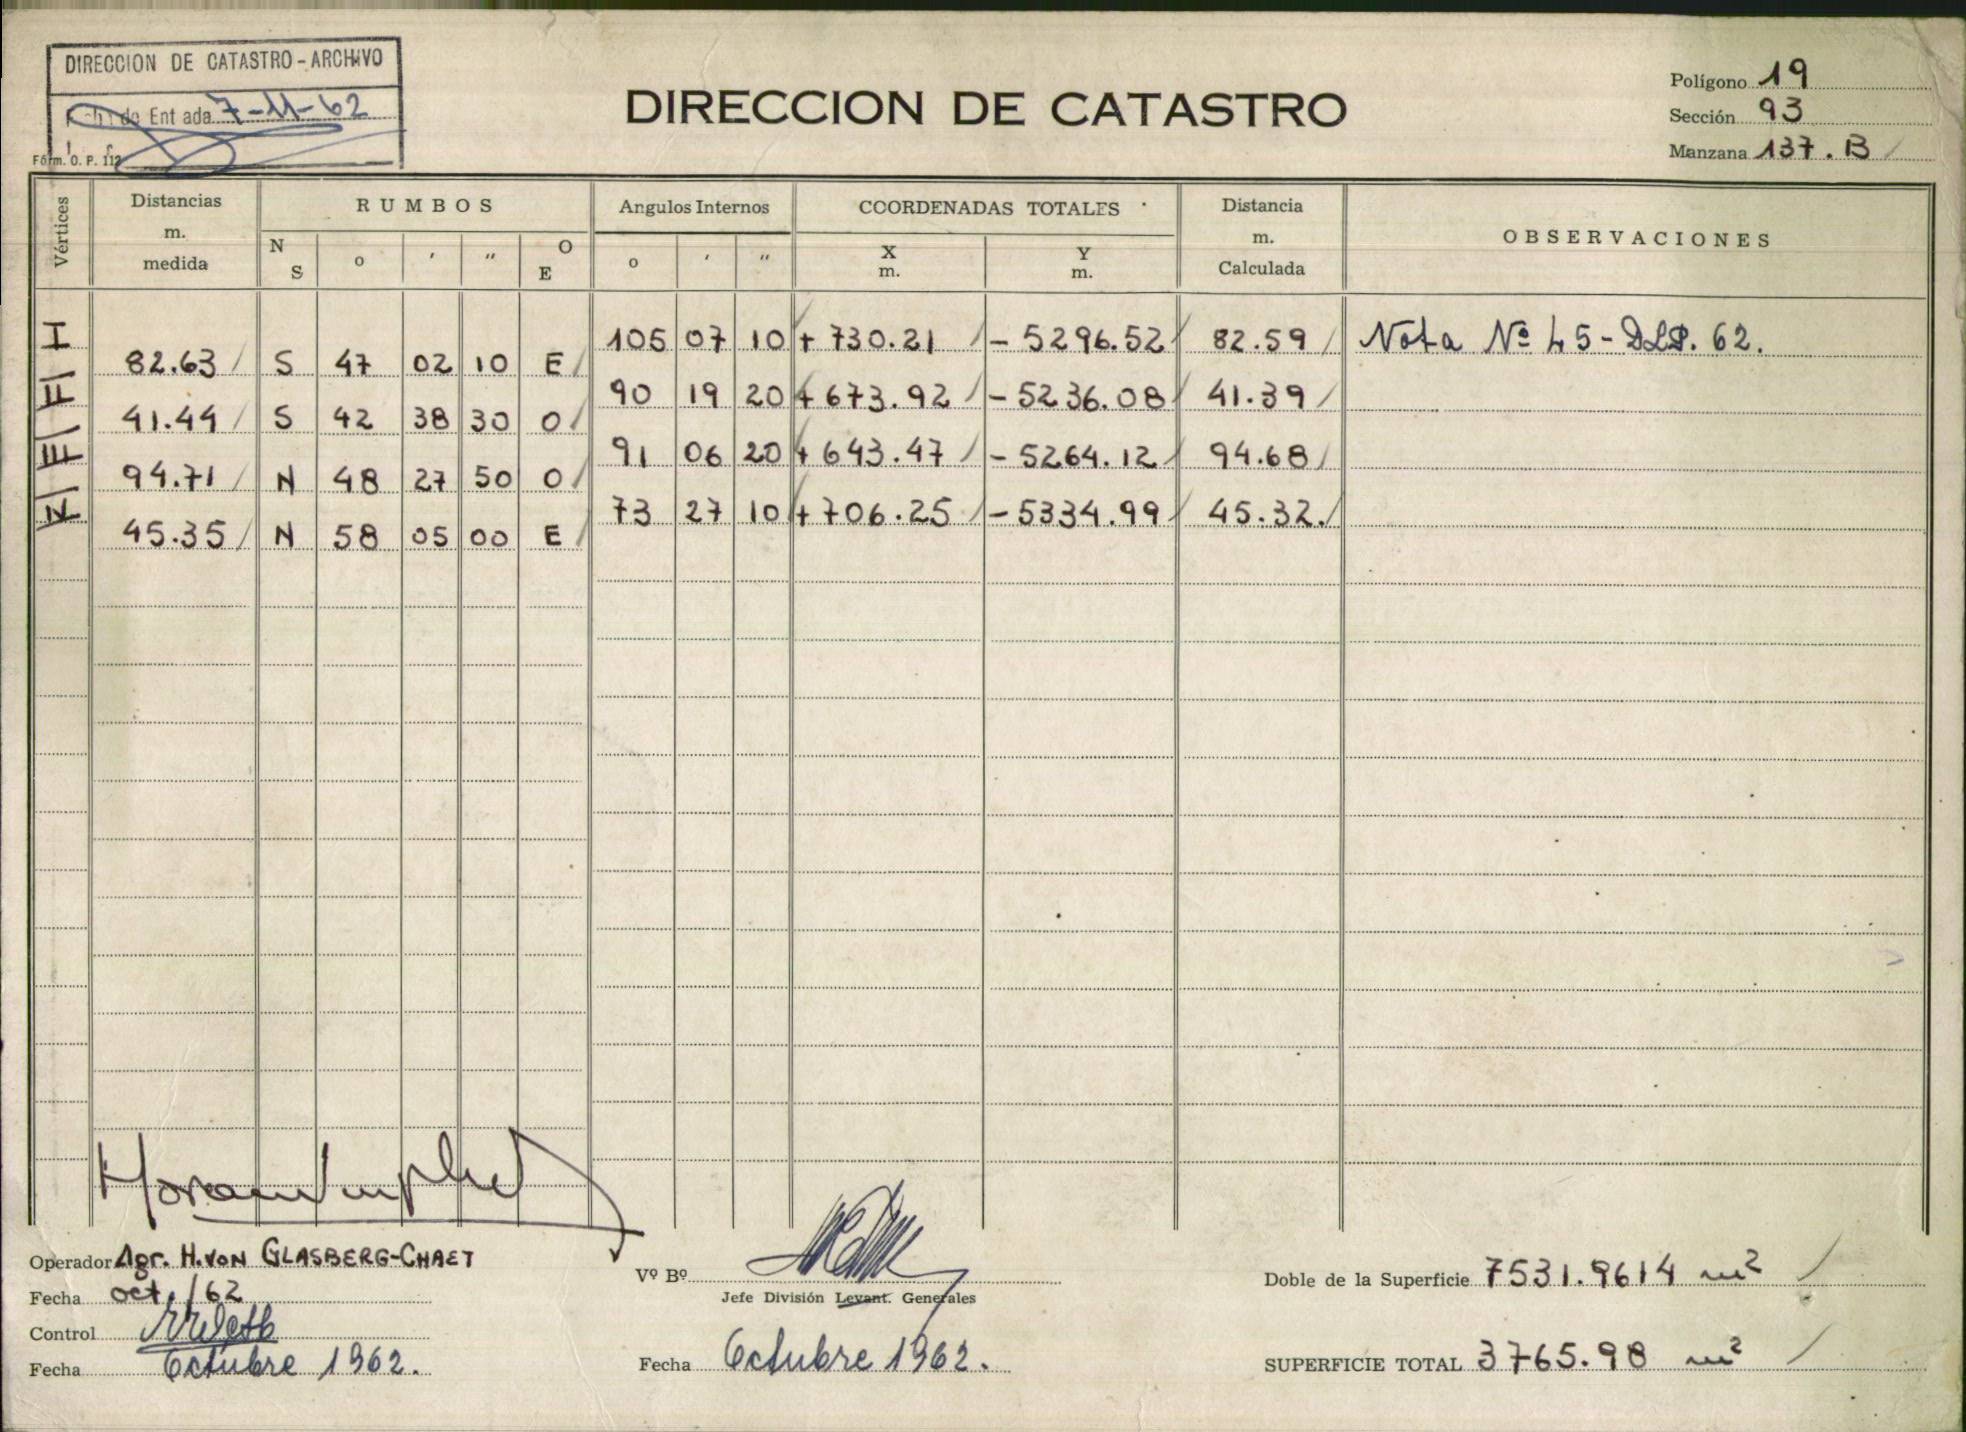 DIRECCION DE CATASTRO - ARCHIVO
de Ent ada 7-11-62
Fórm. O. P. 112
DIRECCION DE CATASTRO
Polígono 19
Sección 93
Manzana 137.B
Vértices
Distancias m. medida
RUMBOS
Angulos Internos
COORDENADAS TOTALES
Distancia m. Calculada
OBSERVACIONES
N S o ′ ″ O E
o ′ ″
X m. Y m.
105 07 10 + 730.21 - 5296.52 82.59 Nota Nº 45-DLP. 62.
82.63 S 47 02 10 E
90 19 20 + 673.92 - 5236.08 41.39
41.44 S 42 38 30 O
91 06 20 + 643.47 - 5264.12 94.68
94.71 N 48 27 50 O
73 27 10 + 706.25 - 5334.99 45.32.
45.35 N 58 05 00 E
Operador Agr. H. VON GLASBERG-CHAET
Fecha oct./62
Control
Fecha Octubre 1962.
Vº Bº
Jefe División Levant. Generales
Fecha Octubre 1962.
Doble de la Superficie 7531.9614 m²
SUPERFICIE TOTAL 3765.98 m²